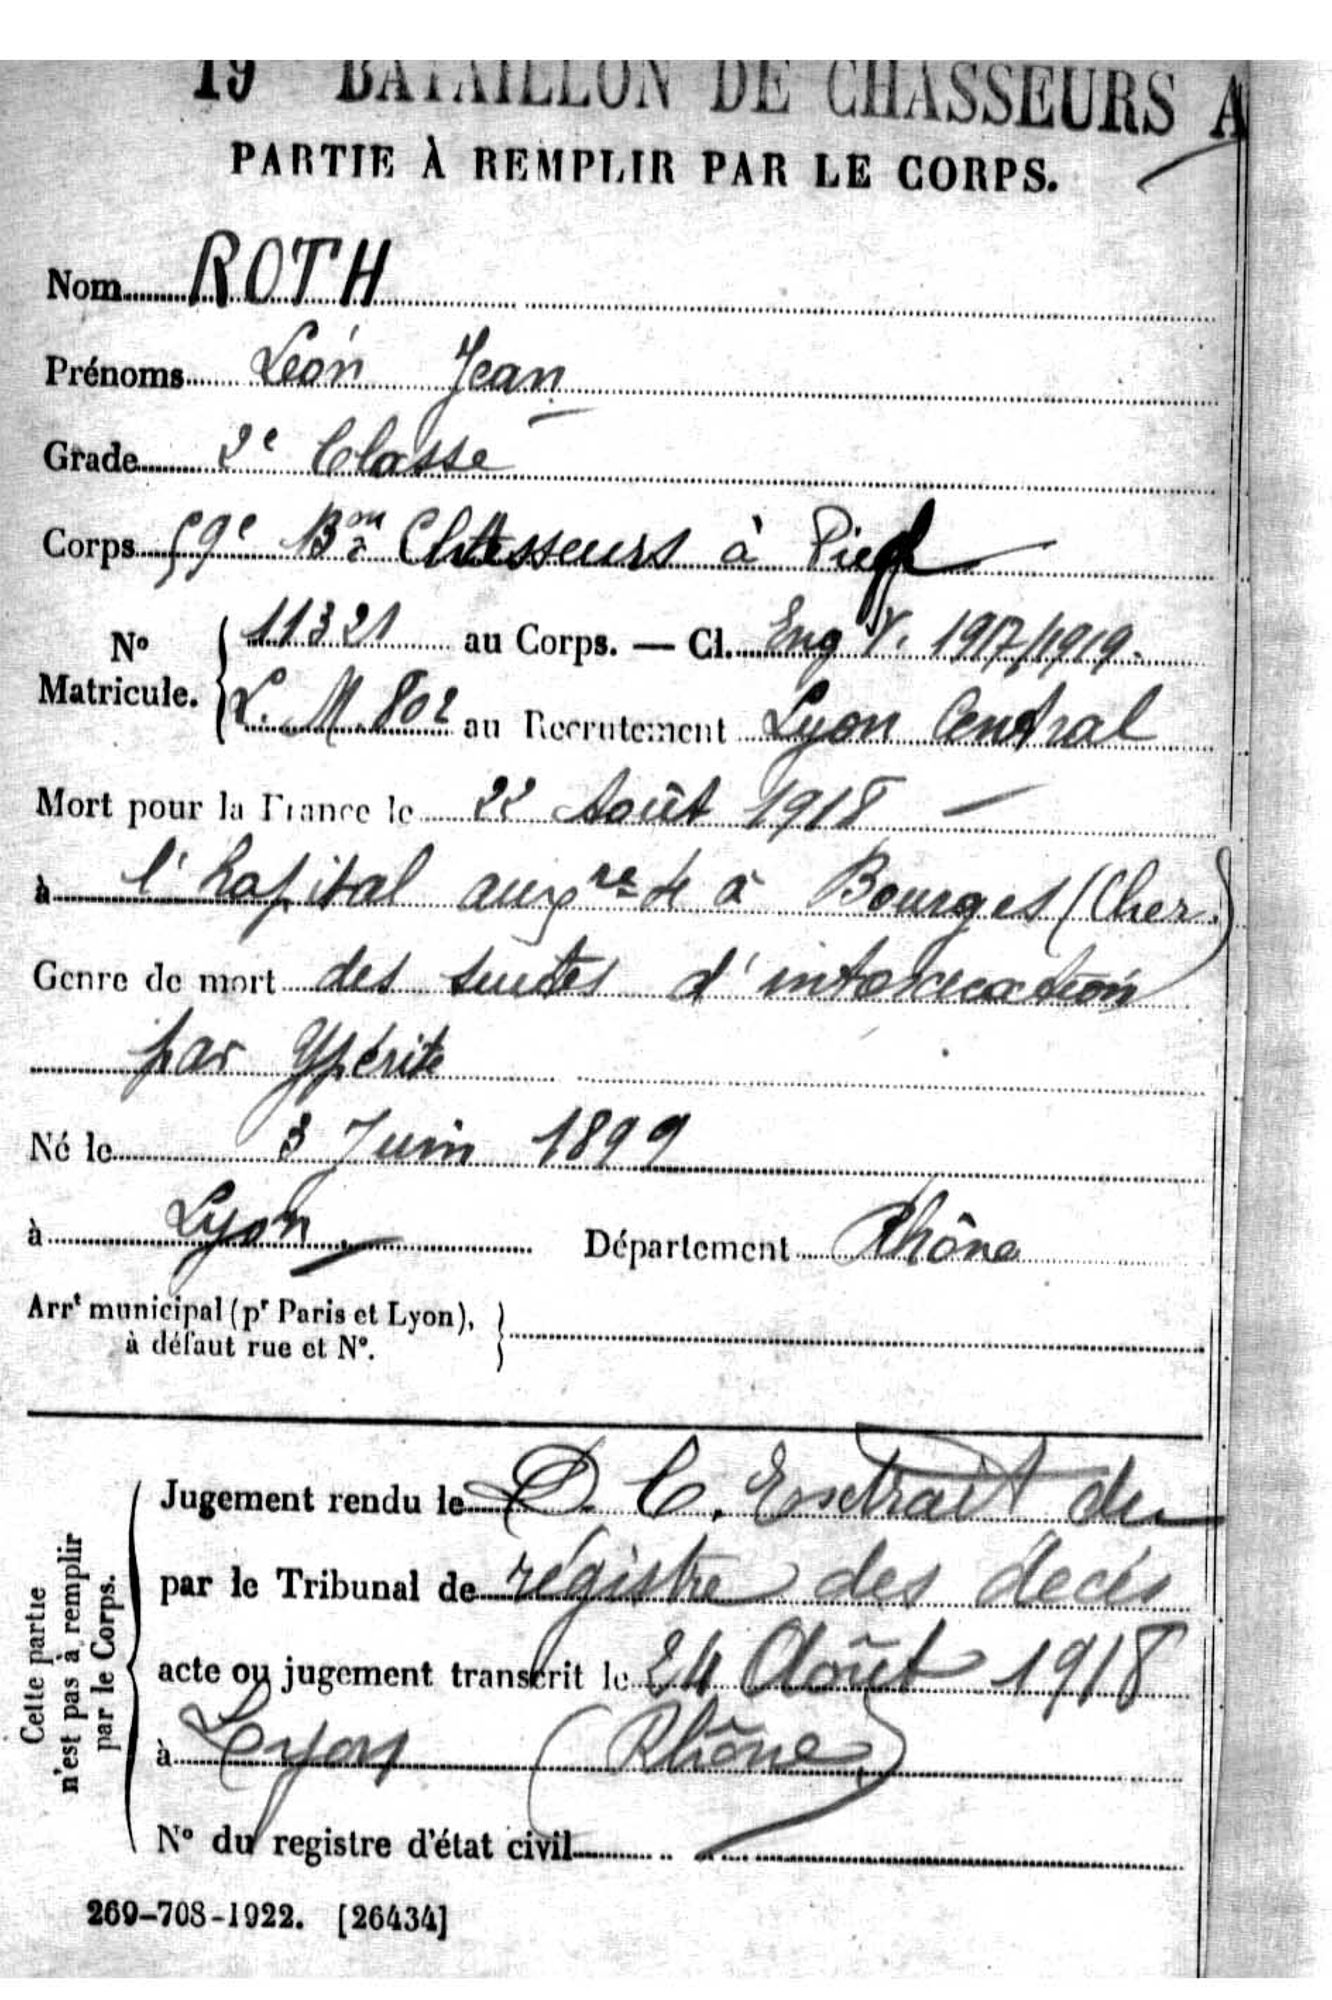 19 BATAILLON DE CHASSEURS A
PARTIE À REMPLIR PAR LE CORPS.
Nom ROTH
Prénoms Léon Jean
Grade 2e Classe
Corps 59e Bon Chasseurs à Pied
No Matricule. { 11321 au Corps. — Cl. Eng V. 1917/1919.
L. M. 802 au Recrutement Lyon Central
Mort pour la France le 22 Août 1918 —
à l'hopital auxre 4 à Bourges (Cher.)
Genre de mort des suites d'intoxication
par Ypérite
Né le 3 Juin 1899
à Lyon. Département Rhône
Arrt municipal (pr Paris et Lyon), }
à défaut rue et No.
Cette partie
n'est pas à remplir
par le Corps.
Jugement rendu le D. C. Extrait du
par le Tribunal de régistre des décés
acte ou jugement transcrit le 24 Août 1918
à Lyon (Rhône)
No du registre d'état civil
269-708-1922. [26434]